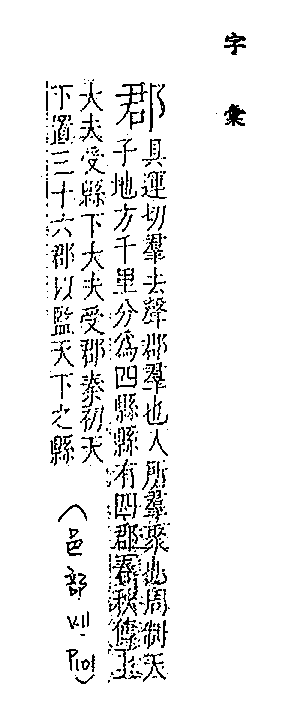 字彙
郡 具運切羣去聲郡羣也人所羣聚也周制天
子地方千里分爲四縣縣有四郡春秋傳上
大夫受縣下大夫受郡秦初天
下置三十六郡以監天下之縣
(邑部 VII- P101)